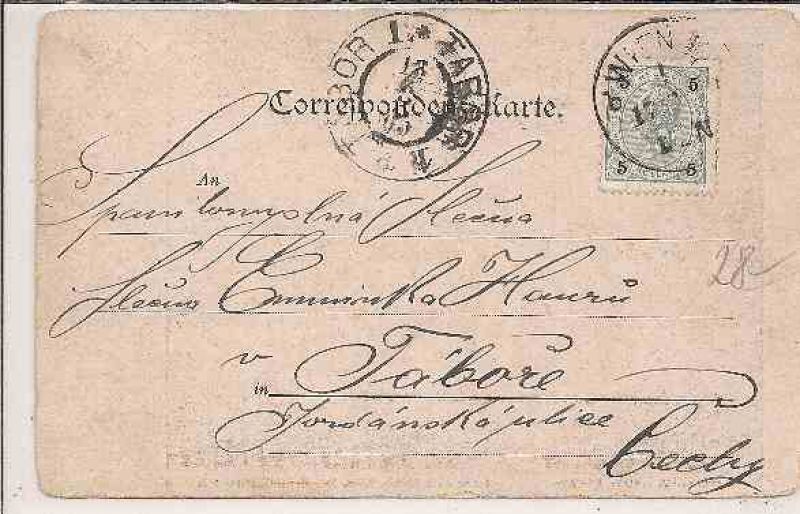 TÁBOR 1. * TABOR
WIEN
5 5
5 5
Correspondenz-Karte.
An
Spanilomyslná slečna
slečna Emminka
28
v Táboře
in
Jordánská ulice
Čechy